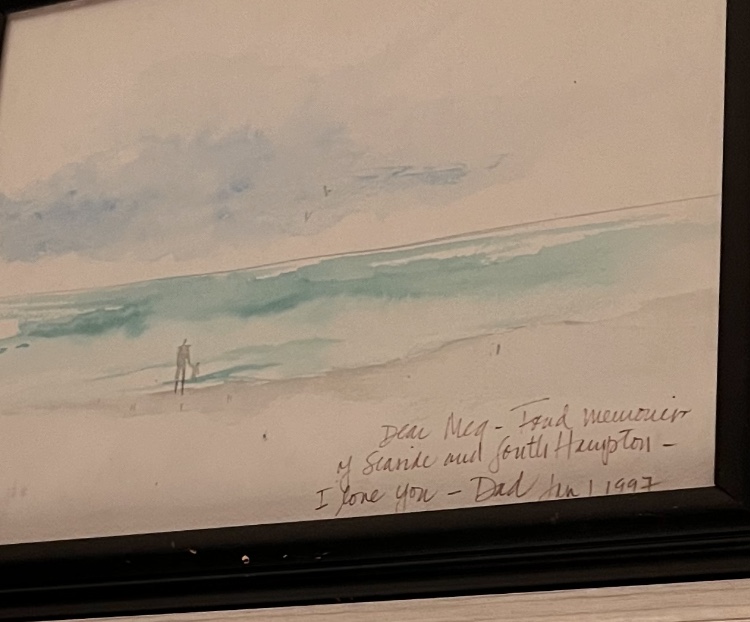 Dear Meg - Fond memories
of Seaside and South Hampton -
I love you - Dad Jan 1 1997